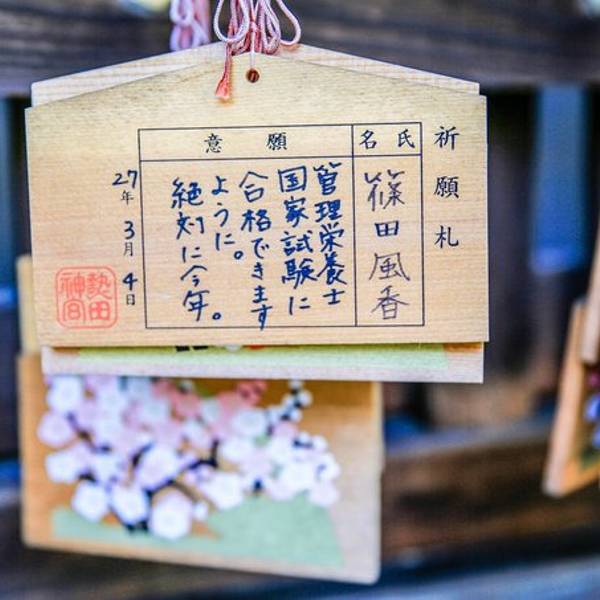 祈願札
氏名
篠田風香
願意
管理栄養士
国家試験に
合格できます
ように。
絶対に今年。
27年3月4日
熱田神宮